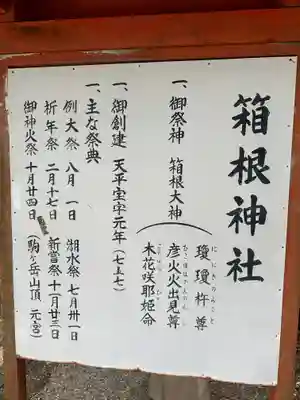 箱根神社
一、御祭神 箱根大神
瓊瓊杵尊
ににぎのみこと
彦火火出見尊
ひこほほでみのみこと
木花咲耶姫命
一、御創建 天平宝字元年（七五七）
一、主な祭典
例大祭 八月一日 湖水祭 七月卅一日
祈年祭 二月十七日 新嘗祭 十一月廿三日
御神火祭 十月廿四日（駒ヶ岳山頂 元宮）